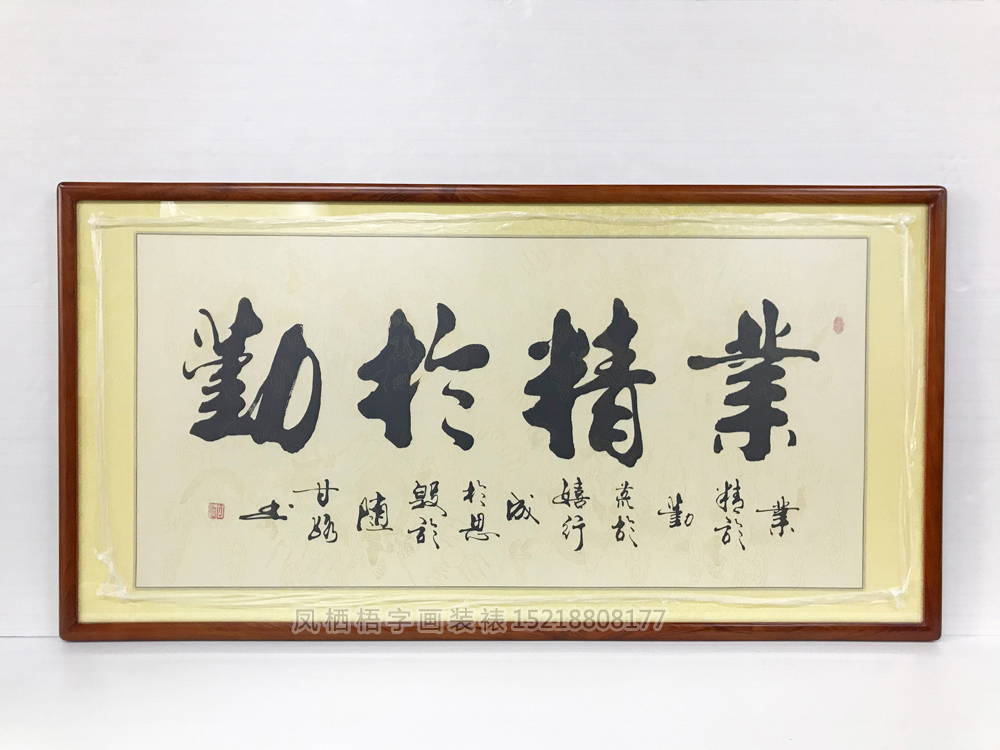 業精於勤
業
精於
勤
荒於
嬉行
成
於思
毀於
隨
甘
书
凤栖梧字画装裱15218808177